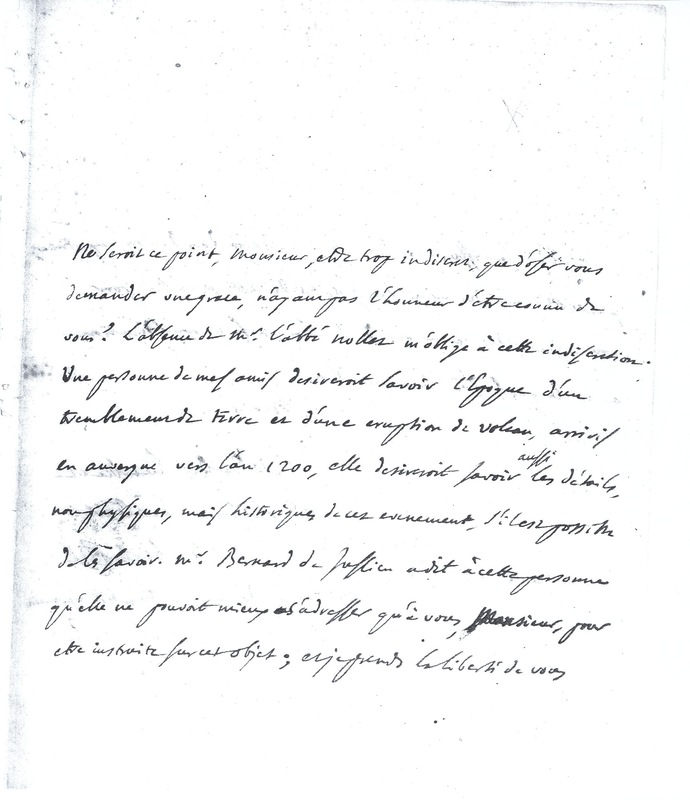 Ne seroit ce point, monsieur, etre trop indiscret, que d'oser vous
demander une grace, n'ayant pas l'honneur d'être connu de
vous? L'absence de Mr. l'abbé Nollet m'oblige à cette indiscretion.
Une personne de mes amis desireroit savoir l'Epoque d'un
tremblement de terre et d'une eruption de volcan, arrivés
en auvergne vers l'an 1200, elle desireroit savoir aussi les détails,
non physiques, mais historiques de cet evenement, s'il est possible
de les savoir. mr. Bernard de Jussieu a dit à cette personne
qu'elle ne pouvoit mieux s'adresser qu'à vous, Monsieur, pour
etre instruite sur cet objet; et je prends la liberté de vous